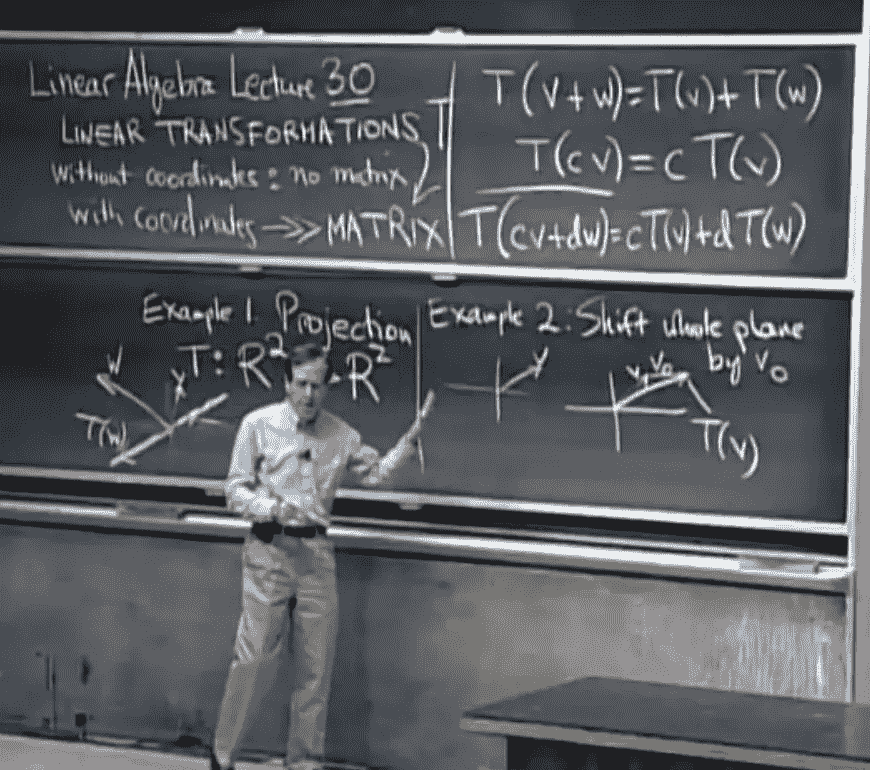 Linear Algebra Lecture 30
LINEAR TRANSFORMATIONS T
without coordinates: no matrix
with coordinates →> MATRIX
T(v+w)=T(v)+T(w)
T(cv)=cT(v)
T(cv+dw)=cT(v)+dT(w)
Example 1. Projection
T: R² R²
W
V
T(w)
Example 2: Shift whole plane
by v₀
v
v₀
T(v)